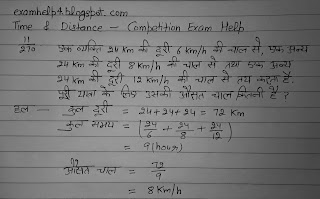 examhelp4.blogspot.com
Time & Distance - Competition Exam Help
11
270
एक व्यक्ति 24 km की दूरी 6 km/h की चाल से, एक अन्य
24 km की दूरी 8 km/h की चाल से तथा एक अन्य
24 km की दूरी 12 km/h की चाल से तय करता है.
पूरी यात्रा के लिए उसकी औसत चाल कितनी है?
हल — कुल दूरी = 24+24+24 = 72 km
कुल समय = (24/6 + 24/8 + 24/12)
= 9 (hours)
औसत चाल = 72/9
= 8 km/h